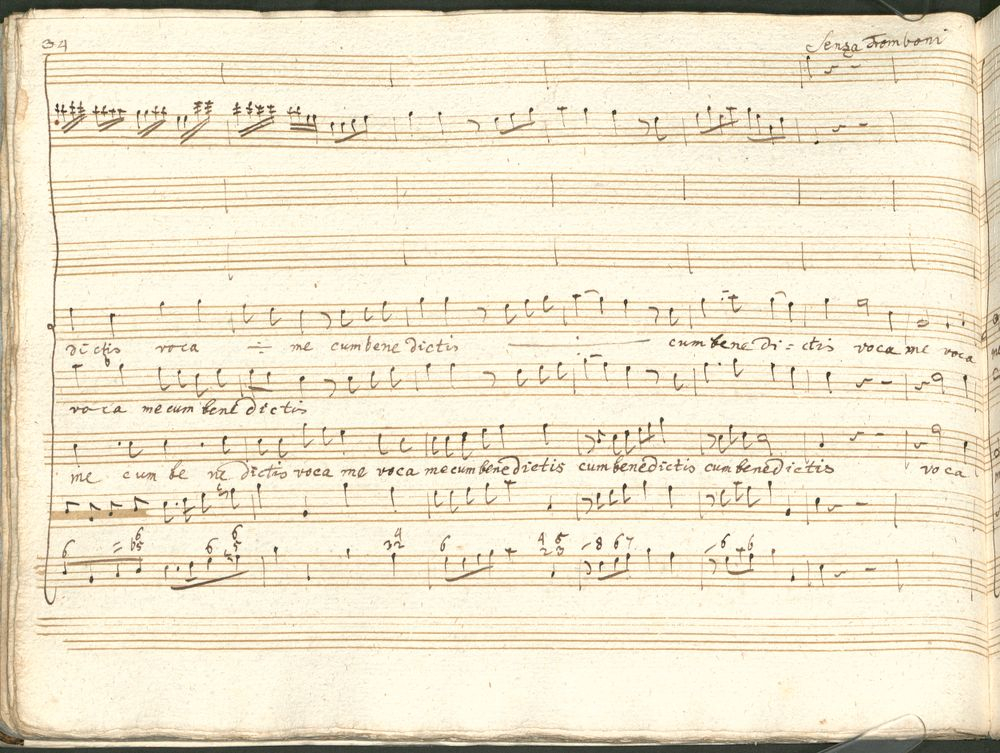 34
Senza Tromboni
dictis voca -:- me cum bene dictis -:- cum bene di = ctis voca me voca
voca me cum bene dictis
me cum be ne dictis voca me voca me cum bene dictis cum bene dictis cum bene dictis voca
6 = 6 b5 6 6 5 3 4 2 6 4 2 5 3 -8 6 7 -6 6